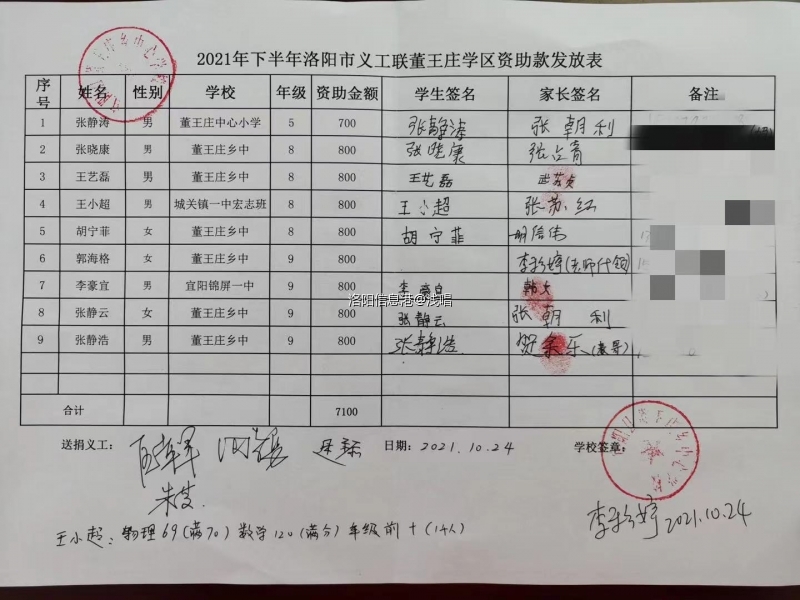 2021年下半年洛阳市义工联董王庄学区资助款发放表
序号 姓名 性别 学校 年级 资助金额 学生签名 家长签名 备注
1 张静涛 男 董王庄中心小学 5 700 张静涛 张朝利
2 张晓康 男 董王庄乡中 8 800 张晓康 张占青
3 王艺磊 男 董王庄乡中 8 800 王艺磊
4 王小超 男 城关镇一中宏志班 8 800 王小超 张苏红
5 胡宁菲 女 董王庄乡中 8 800 胡宁菲 胡信伟
6 郭海格 女 董王庄乡中 9 800 李彩婷(老师代领)
7 李豪宜 男 宜阳锦屏一中 9 800
洛阳信息港@浅唱
8 张静云 女 董王庄乡中 9 800 张静云 张朝利
9 张静浩 男 董王庄乡中 9 800 张静浩
合计 7100
送捐义工： 日期：2021.10.24 学校签章：
李彩婷 2021.10.24
王小超：物理69(满70) 数学120(满分) 年级前十(14人)